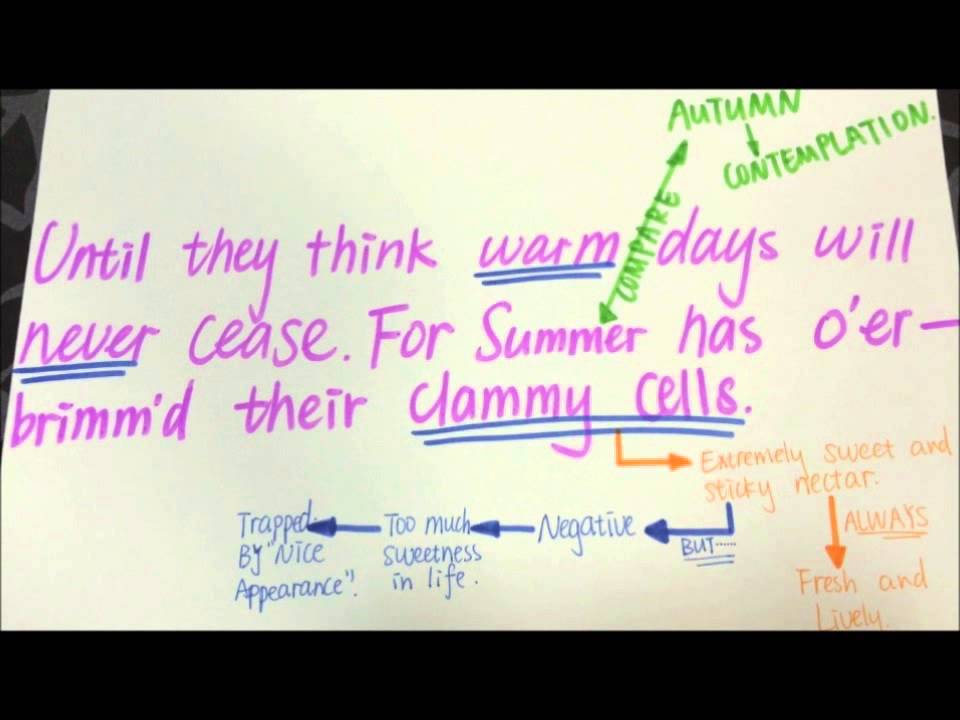 AUTUMN
CONTEMPLATION.
COMPARE
Until they think warm days will
never cease. For Summer has o'er—
brimm'd their clammy cells.
Extremely sweet and
sticky nectar.
ALWAYS
Fresh and
Lively.
BUT......
Negative
Too much
sweetness
in life.
Trapped
By "Nice
Appearance".